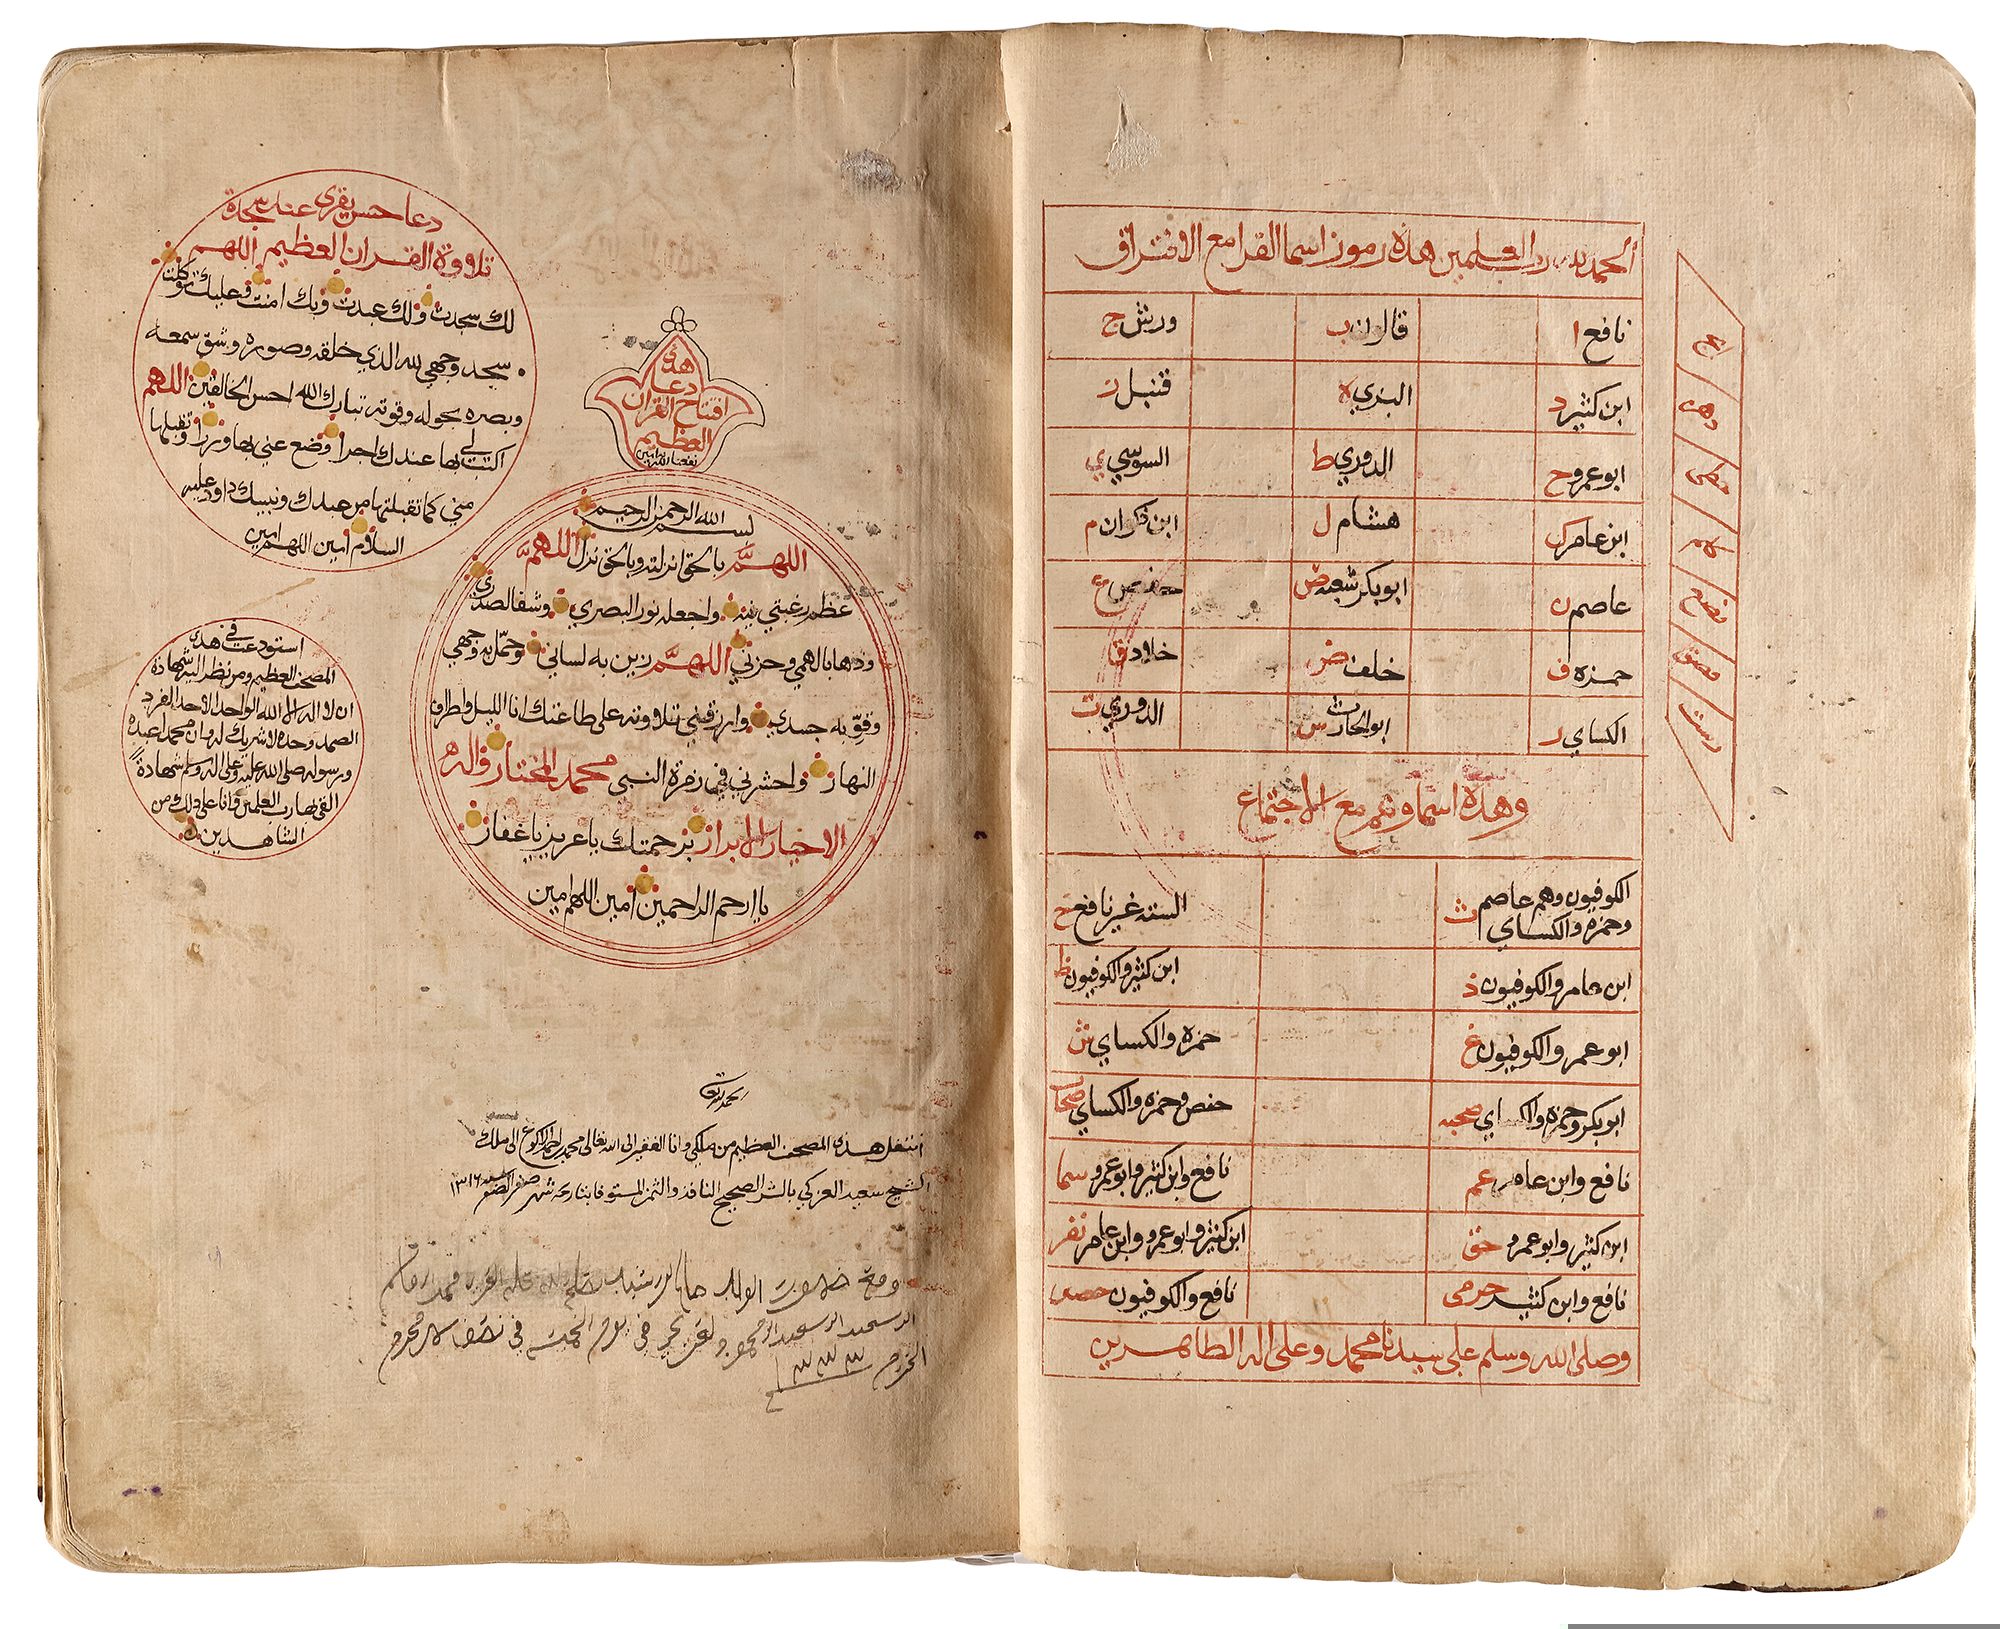 الحمد لله رب العلمين هذه رموز اسما القرا مع الافتراق
نافع ا قالون ب ورش ج
ابن كثير د البزي ه قنبل ز
ابو عمرو ح الدوري ط السوسي ي
ابن عامر ك هشام ل ابن ذكوان م
عاصم ن ابو بكر شعبه ص حفص ع
حمزه ف خلف ض خلاد ق
الكساي ر ابو الحارث س الدوري ت
ابج
دهز
حطي
كلم
نصع
فضق
رست
وهذه اسماوهم مع الاجتماع
الكوفيون وهم عاصم ث الستة غير نافع خ
وحمزه والكساي
ابن عامر والكوفيون ذ ابن كثير والكوفيون ظ
ابو عمر والكوفيون غ حمزه والكساي ش
ابو بكر وحمزه والكساي صحبه حفص وحمزه والكساي صحاب
نافع وابن عامر عم نافع وابن كثير وابو عمرو سما
ابن كثير وابو عمرو حق ابن كثير وابو عمرو وابن عامر نفر
نافع وابن كثير حرمى نافع والكوفيون حصن
وصلى الله وسلم على سيدنا محمد وعلى اله الطاهرين
دعا حسن يقرى عند سجدة
تلاوة القران العظيم اللهم
لك سجدت ولك عبدت وبك امنت وعليك توكلت
سجد وجهي لله الذي خلقه وصوره وشق سمعه
وبصره بحوله وقوته تبارك الله احسن الخالقين اللهم
اكتب لي بها عندك اجرا وضع عني بها وزرا وتقبلها
مني كما تقبلتها من عبدك ونبيك داود عليه
السلام امين اللهم امين
هذا
دعا
افتتاح القران
العظيم
نفعنا الله به امين
بسم الله الرحمن الرحيم
اللهم بالحق انزلته وبالحق نزل اللهم
عظم رغبتي فيه واجعله نور البصري وشفا لصدري
وذهابا لهمي وحزني اللهم زين به لساني وجمل به وجهي
وقوي به جسدي وارزقني تلاوته على طاعتك انا الليل واطراف
النهار واحشرني في زمرة النبي محمد المختار واله
الاخيار الابرار برحمتك يا عزيز يا غفار
يا ارحم الراحمين امين اللهم امين
استودعت في هذا
المصحف العظيم ومن نظر اليه شهادة
ان لا اله الا الله الواحد الاحد الفرد
الصمد وحده لا شريك له وان محمدا عبده
ورسوله صلى الله عليه وعلى اله وسلم شهادة
القى بها رب العلمين وانا على ذلك من
الشاهدين
الحمد لله
انتقل هذا المصحف العظيم من ملكي وانا الفقير الى الله تعالى محمد بن احمد الاكوع الى ملك
الشيخ سعيد العزكي بالشرا الصحيح النافذ والثمن المستوفا بتاريخه شهر صفر الظفر سنة ١٣١٦
الولد
في يوم الجمعة في نصف شهر محرم
الحرام ١٣٣٣